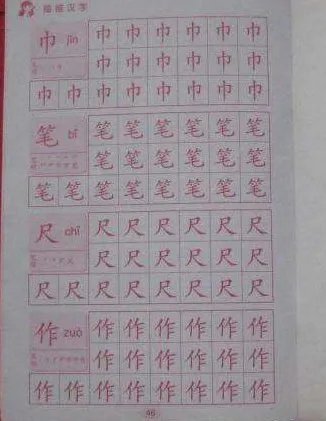 汉字
巾 jīn 巾 巾 巾 巾 巾 巾 巾
巾 巾 巾 巾 巾 巾 巾
巾 巾 巾 巾 巾 巾 巾 巾 巾
笔 bǐ 笔 笔 笔 笔 笔 笔 笔
笔 笔 笔 笔 笔 笔 笔
笔 笔 笔 笔 笔 笔 笔 笔 笔
尺 chǐ 尺 尺 尺 尺 尺 尺 尺
尺 尺 尺 尺 尺 尺 尺
尺 尺 尺 尺 尺 尺 尺 尺 尺
作 zuò 作 作 作 作 作 作 作
作 作 作 作 作 作 作
作 作 作 作 作 作 作 作 作